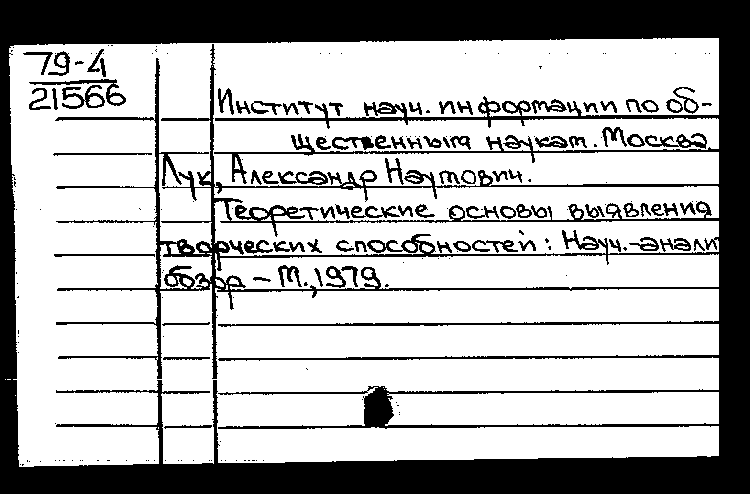 79-4
21566
Институт науч. информации по об-
щественным наукам. Москва
Лук, Александр Наумович.
Теоретические основы выявления
творческих способностей: Науч.-анали
обзор - М., 1979.